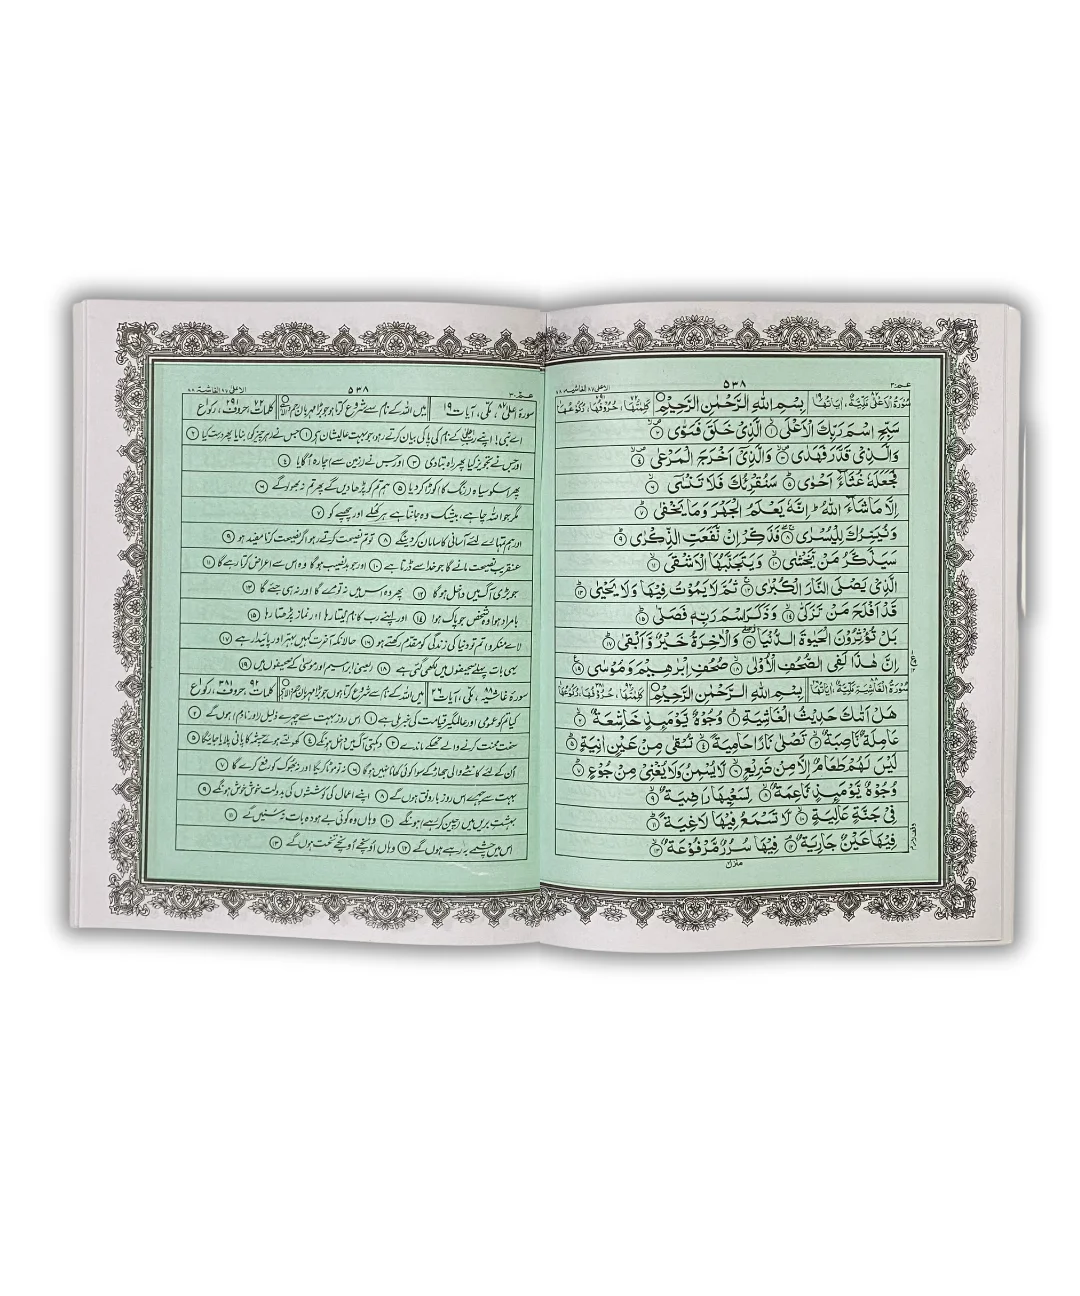 عـم ٣٠
٥٣٨
الاعلٰى ٨٧ الغاشية ٨٨
سُوْرَةُ الْاَعْلٰى مَكِّيَّةٌ، اٰيَاتُهَا ١٩ بِسْمِ اللّٰهِ الرَّحْمٰنِ الرَّحِيْمِ كَلِمَاتُهَا، حُرُوْفُهَا، رُكُوْعُهَا
سَبِّحِ اسْمَ رَبِّكَ الْاَعْلَى ۝١ الَّذِيْ خَلَقَ فَسَوّٰى ۝٢
وَالَّذِيْ قَدَّرَ فَهَدٰى ۝٣ وَالَّذِيْٓ اَخْرَجَ الْمَرْعٰى ۝٤
فَجَعَلَهٗ غُثَآءً اَحْوٰى ۝٥ سَنُقْرِئُكَ فَلَا تَنْسٰٓى ۝٦
اِلَّا مَا شَآءَ اللّٰهُ ؕ اِنَّهٗ يَعْلَمُ الْجَهْرَ وَمَا يَخْفٰى ۝٧
وَنُيَسِّرُكَ لِلْيُسْرٰى ۝٨ فَذَكِّرْ اِنْ نَّفَعَتِ الذِّكْرٰى ۝٩
سَيَذَّكَّرُ مَنْ يَّخْشٰى ۝١٠ وَيَتَجَنَّبُهَا الْاَشْقَى ۝١١
الَّذِيْ يَصْلَى النَّارَ الْكُبْرٰى ۝١٢ ثُمَّ لَا يَمُوْتُ فِيْهَا وَلَا يَحْيٰى ۝١٣
قَدْ اَفْلَحَ مَنْ تَزَكّٰى ۝١٤ وَذَكَرَ اسْمَ رَبِّهٖ فَصَلّٰى ۝١٥
بَلْ تُؤْثِرُوْنَ الْحَيٰوةَ الدُّنْيَا ۝١٦ وَالْاٰخِرَةُ خَيْرٌ وَّاَبْقٰى ۝١٧
اِنَّ هٰذَا لَفِي الصُّحُفِ الْاُوْلٰى ۝١٨ صُحُفِ اِبْرٰهِيْمَ وَمُوْسٰى ۝١٩
سُوْرَةُ الْغَاشِيَةِ مَكِّيَّةٌ، اٰيَاتُهَا بِسْمِ اللّٰهِ الرَّحْمٰنِ الرَّحِيْمِ كَلِمَاتُهَا، حُرُوْفُهَا، رُكُوْعُهَا
هَلْ اَتٰىكَ حَدِيْثُ الْغَاشِيَةِ ۝١ وُجُوْهٌ يَّوْمَىِٕذٍ خَاشِعَةٌ ۝٢
عَامِلَةٌ نَّاصِبَةٌ ۝٣ تَصْلٰى نَارًا حَامِيَةً ۝٤ تُسْقٰى مِنْ عَيْنٍ اٰنِيَةٍ ۝٥
لَيْسَ لَهُمْ طَعَامٌ اِلَّا مِنْ ضَرِيْعٍ ۝٦ لَّا يُسْمِنُ وَلَا يُغْنِيْ مِنْ جُوْعٍ ۝٧
وُجُوْهٌ يَّوْمَىِٕذٍ نَّاعِمَةٌ ۝٨ لِّسَعْيِهَا رَاضِيَةٌ ۝٩
فِيْ جَنَّةٍ عَالِيَةٍ ۝١٠ لَّا تَسْمَعُ فِيْهَا لَاغِيَةً ۝١١
فِيْهَا عَيْنٌ جَارِيَةٌ ۝١٢ فِيْهَا سُرُرٌ مَّرْفُوْعَةٌ ۝١٣
عـم ٣٠
٥٣٨
الاعلٰى ٨٧ الغاشية ٨٨
سورۃ اعلیٰ ٨٧، مکّی، آیات ١٩ میں اللہ کے نام سے شروع کرتا ہوں جو بڑا مہربان کلمات ٧٢، حروف ٢٩١، رکوع ١
اے نبی! اپنے رب کے نام کی پاکی بیان کرتے رہو جو بہت عالیشان ہے ١ جس نے ہر چیز کو بنایا پھر درست کیا ٢
اور جس نے تجویز کیا پھر راہ بتادی ٣ اور جس نے زمین سے چارہ اُگایا ٤
پھر اسکو سیاہ رنگ کا کوڑا کردیا ٥ ہم تم کو پڑھا دیں گے پھر تم نہ بھولوگے ٦
مگر جو اللہ چاہے، بیشک وہ جانتا ہے ہر کھلے اور چھپے کو ٧
اور ہم تمہارے لئے آسانی کا سامان کردینگے ٨ تو تم نصیحت کرتے رہو اگر نصیحت کرنا مفید ہو ٩
عنقریب نصیحت مانے گا جو خدا سے ڈرتا ہے ١٠ اور جو بدنصیب ہوگا وہ اس سے اعراض کرتا رہے گا ١١
جو بڑی آگ میں داخل ہوگا ١٢ پھر وہ اس میں نہ تو مرے گا اور نہ ہی جئے گا ١٣
بامراد ہوا وہ شخص جو پاک ہوا ١٤ اور اپنے رب کا نام لیتا رہا اور نماز پڑھتا رہا ١٥
لائے منکرو! تم تو دنیا کی زندگی کو مقدم رکھتے ہو ١٦ حالانکہ آخرت کہیں بہتر اور پائیدار ہے ١٧
یہی بات پہلے صحیفوں میں لکھی گئی ہے ١٨ (یعنی) ابراہیم اور موسیٰ کے صحیفوں میں ١٩
سورۃ غاشیہ ٨٨، مکّی، آیات ٢٦ میں اللہ کے نام سے شروع کرتا ہوں جو بڑا مہربان کلمات ٩٢، حروف ٣٨١، رکوع ١
کیا تم کو عمومی اور عالمگیر قیامت کی خبر ملی ہے ١ اس روز بہت سے چہرے ذلیل (اور نادم) ہوں گے ٢
سخت محنت کرنے والے تھکے ماندے ٣ دہکتی آگ میں داخل ہونگے ٤ کھولتے ہوئے چشمہ کا پانی پلایا جائیگا ٥
اُن کے لئے کانٹے والی جھاڑ کے سوا کوئی کھانا نہیں ہوگا ٦ نہ تو موٹا کریگا اور نہ بھوک کو رفع کرے گا ٧
بہت سے چہرے اس روز با رونق ہوں گے ٨ اپنے اعمال کی کوششوں کی بدولت خوش خوش ہونگے ٩
بہشت بریں میں ہونگے ١٠ وہاں وہ کوئی بے ہودہ بات نہ سنیں گے ١١
اس میں چشمے بہ رہے ہوں گے ١٢ وہاں اونچے اونچے تخت ہوں گے ١٣